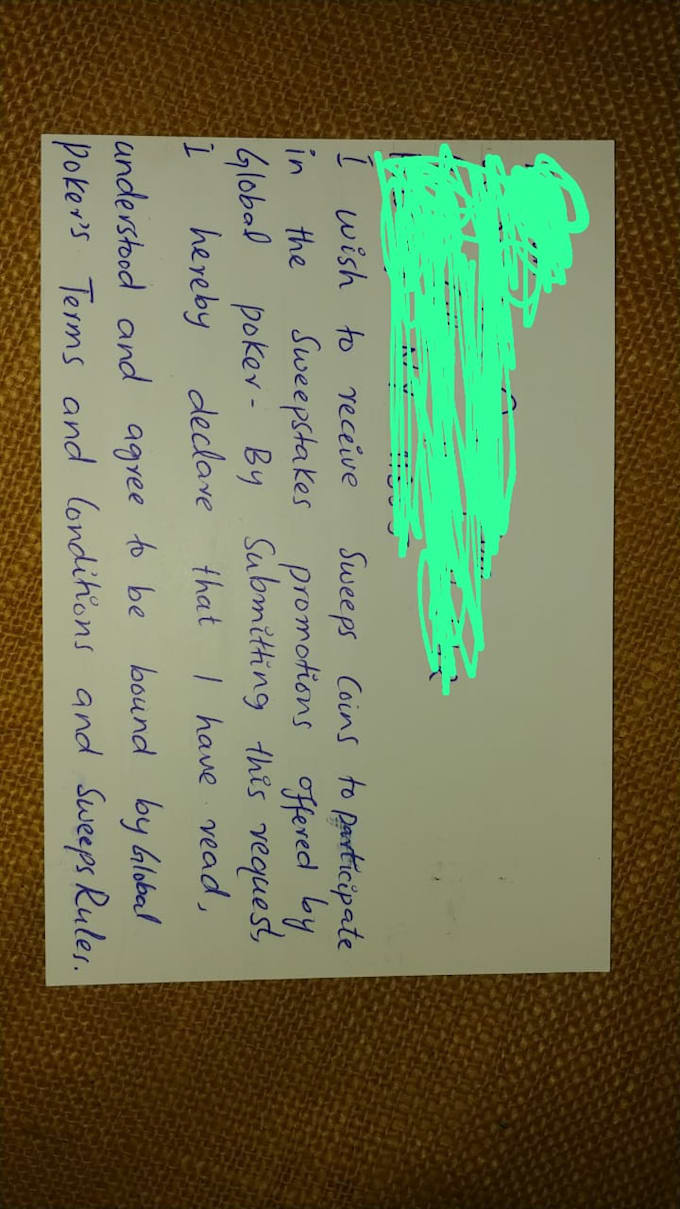 I wish to receive Sweeps Coins to participate
in the Sweepstakes promotions offered by
Global poker. By Submitting this request,
I hereby declare that I have read,
understood and agree to be bound by Global
Poker's Terms and Conditions and Sweeps Rules.